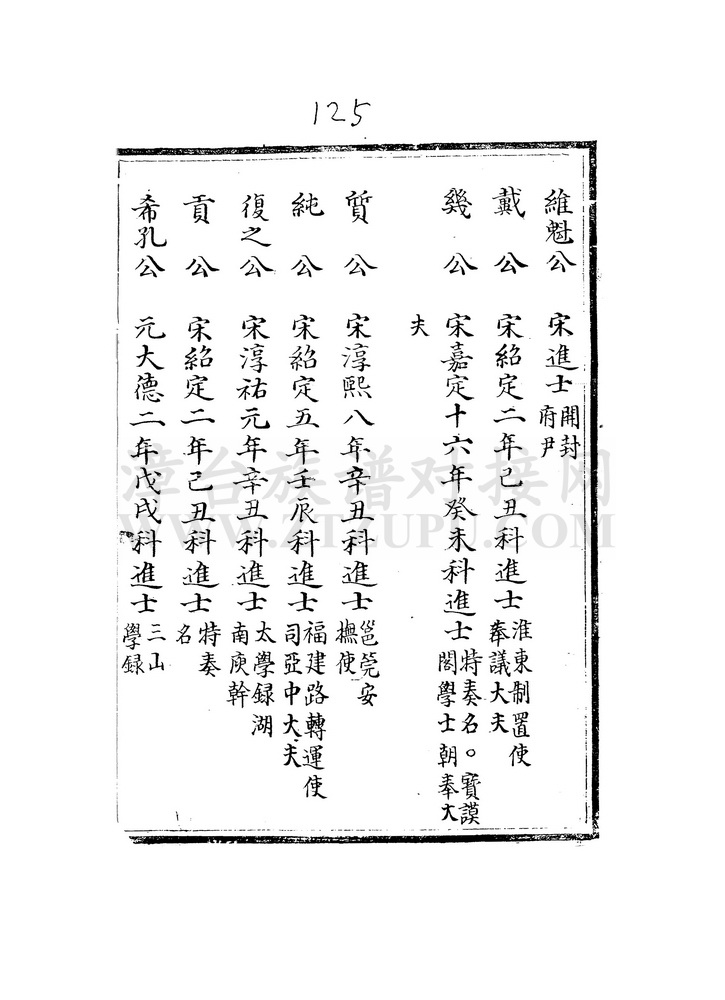 125
維魁公 宋進士 開封府尹
戴公 宋紹定二年己丑科進士 淮東制置使奉議大夫
幾公 宋嘉定十六年癸未科進士 特奏名。寶謨閣學士朝奉大
夫
質公 宋淳熙八年辛丑科進士 邕筦安撫使
純公 宋紹定五年壬辰科進士 福建路轉運使司亞中大夫
復之公 宋淳祐元年辛丑科進士 太學録湖南庾幹
貢公 宋紹定二年己丑科進士 特奏名
希孔公 元大德二年戊戌科進士 三山學録
漳台族谱对接网
WWW.ZTZUPU.COM